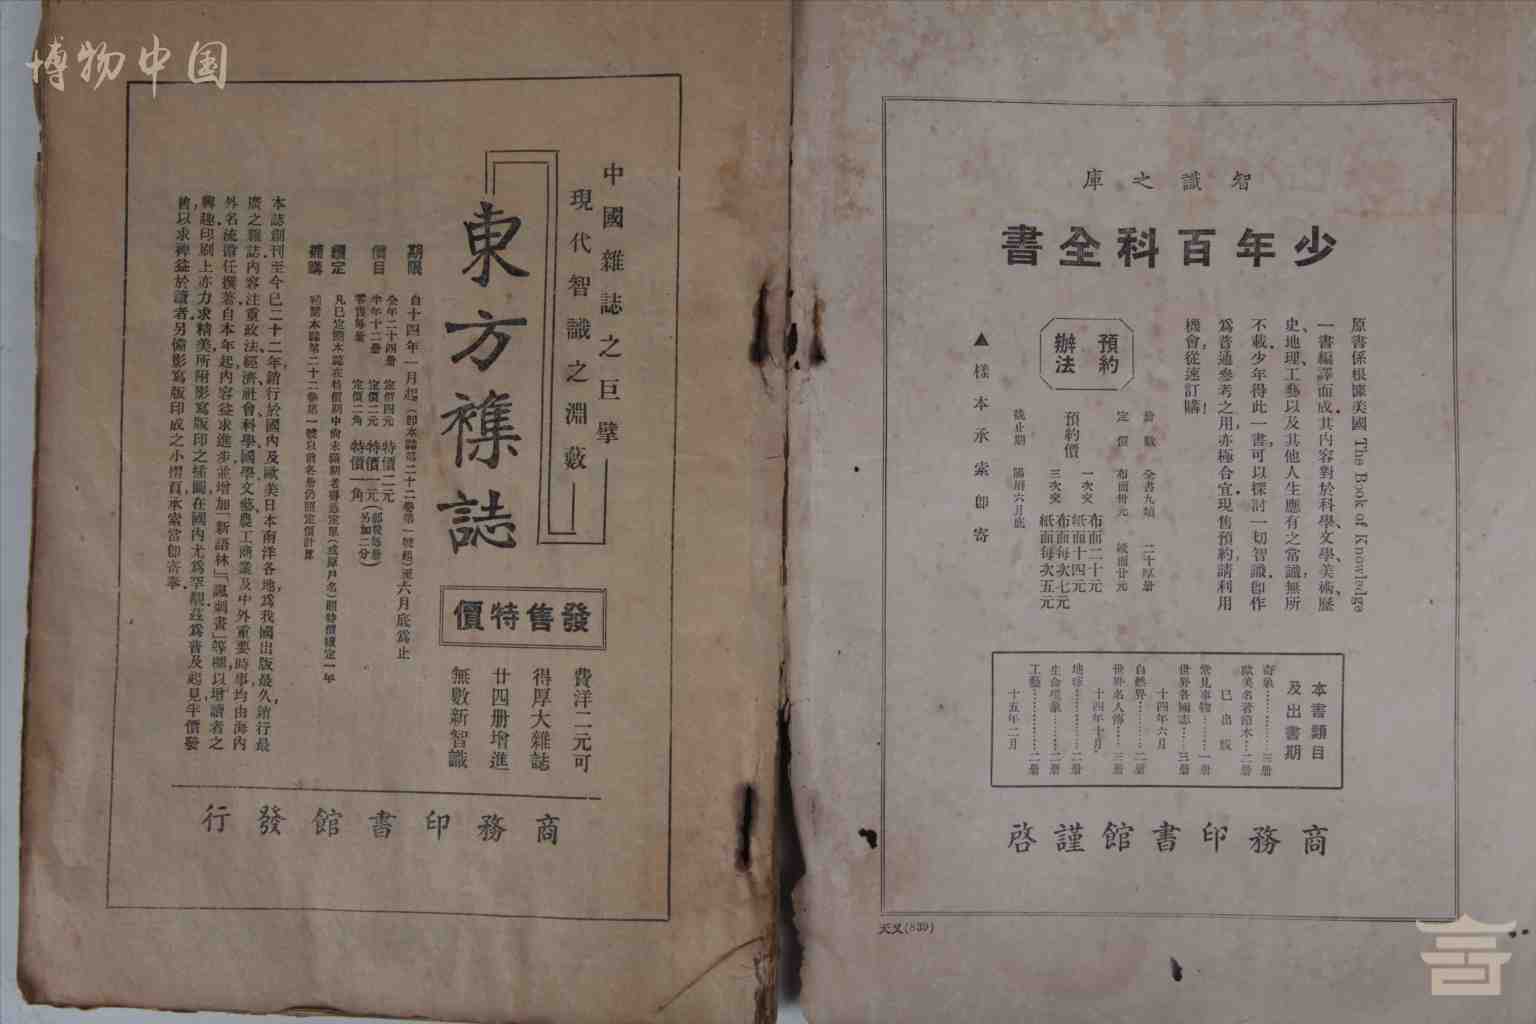 博物中国
智識之庫
少年百科全書
原書係根據美國 The Book of Knowledge
一書編譯而成其内容對於科學、文學、美術、歷
史、地理、工藝以及其他人生應有之常識、無所
不載、少年得此一書、可以探討一切智識、卽作
爲普通參考之用、亦極合宜、現售預約、請利用
機會、從速訂購！
預約
辦法
冊數 全書九類 二十厚册
定價 布面卅元 紙面廿元
預約價
一次交 布面二十元
紙面十四元
三次交 布面每次七元
紙面每次五元
截止期 陽曆六月底
▲樣本承索卽寄
本書類目
及出書期
奇象…………三册
歐美名著節本…二册
已出版
常見事物………一册
世界各國志……三册
十四年六月
自然界…………二册
世界名人傳……三册
十四年十月
地球……………二册
生命現象………二册
工藝……………二册
十五年二月
商務印書館謹啓
天叉(839)
中國雜誌之巨擘
現代智識之淵藪
東方雜誌
發售特價
費洋二元可
得厚大雜誌
廿四册增進
無數新智識
期限 自十四年一月起(卽本誌第二十二卷第一號起)至六月底爲止
價目 全年二十四册 定價四元 特價二元
半年十二册 定價二元 特價一元
零售每册 定價二角 特價一角
(郵費每册
另加二分)
續定 凡已定閱本誌在特價期中尚未滿期者得憑定單(或原戶名)照特價續定一年
補購 補購本誌第二十二卷第一號以前各册仍照定價計算
本誌創刊至今已二十二年、銷行於國内及歐美日本南洋各地、爲我國出版最久、銷行最
廣之雜誌、内容注重政法、經濟、社會、科學、國學、文藝、農工商業及中外重要時事、均由海内
外名流擔任撰著、自本年起、内容益求進步、並增加「新語林」「諷刺畫」等欄、以增讀者之
興趣、印刷上亦力求精美、所附影寫版印之插圖、在國内尤爲罕覯、茲爲普及起見、半價發
售、以求裨益於讀者、另備影寫版印成之小摺頁、承索當卽寄奉。
商務印書館發行